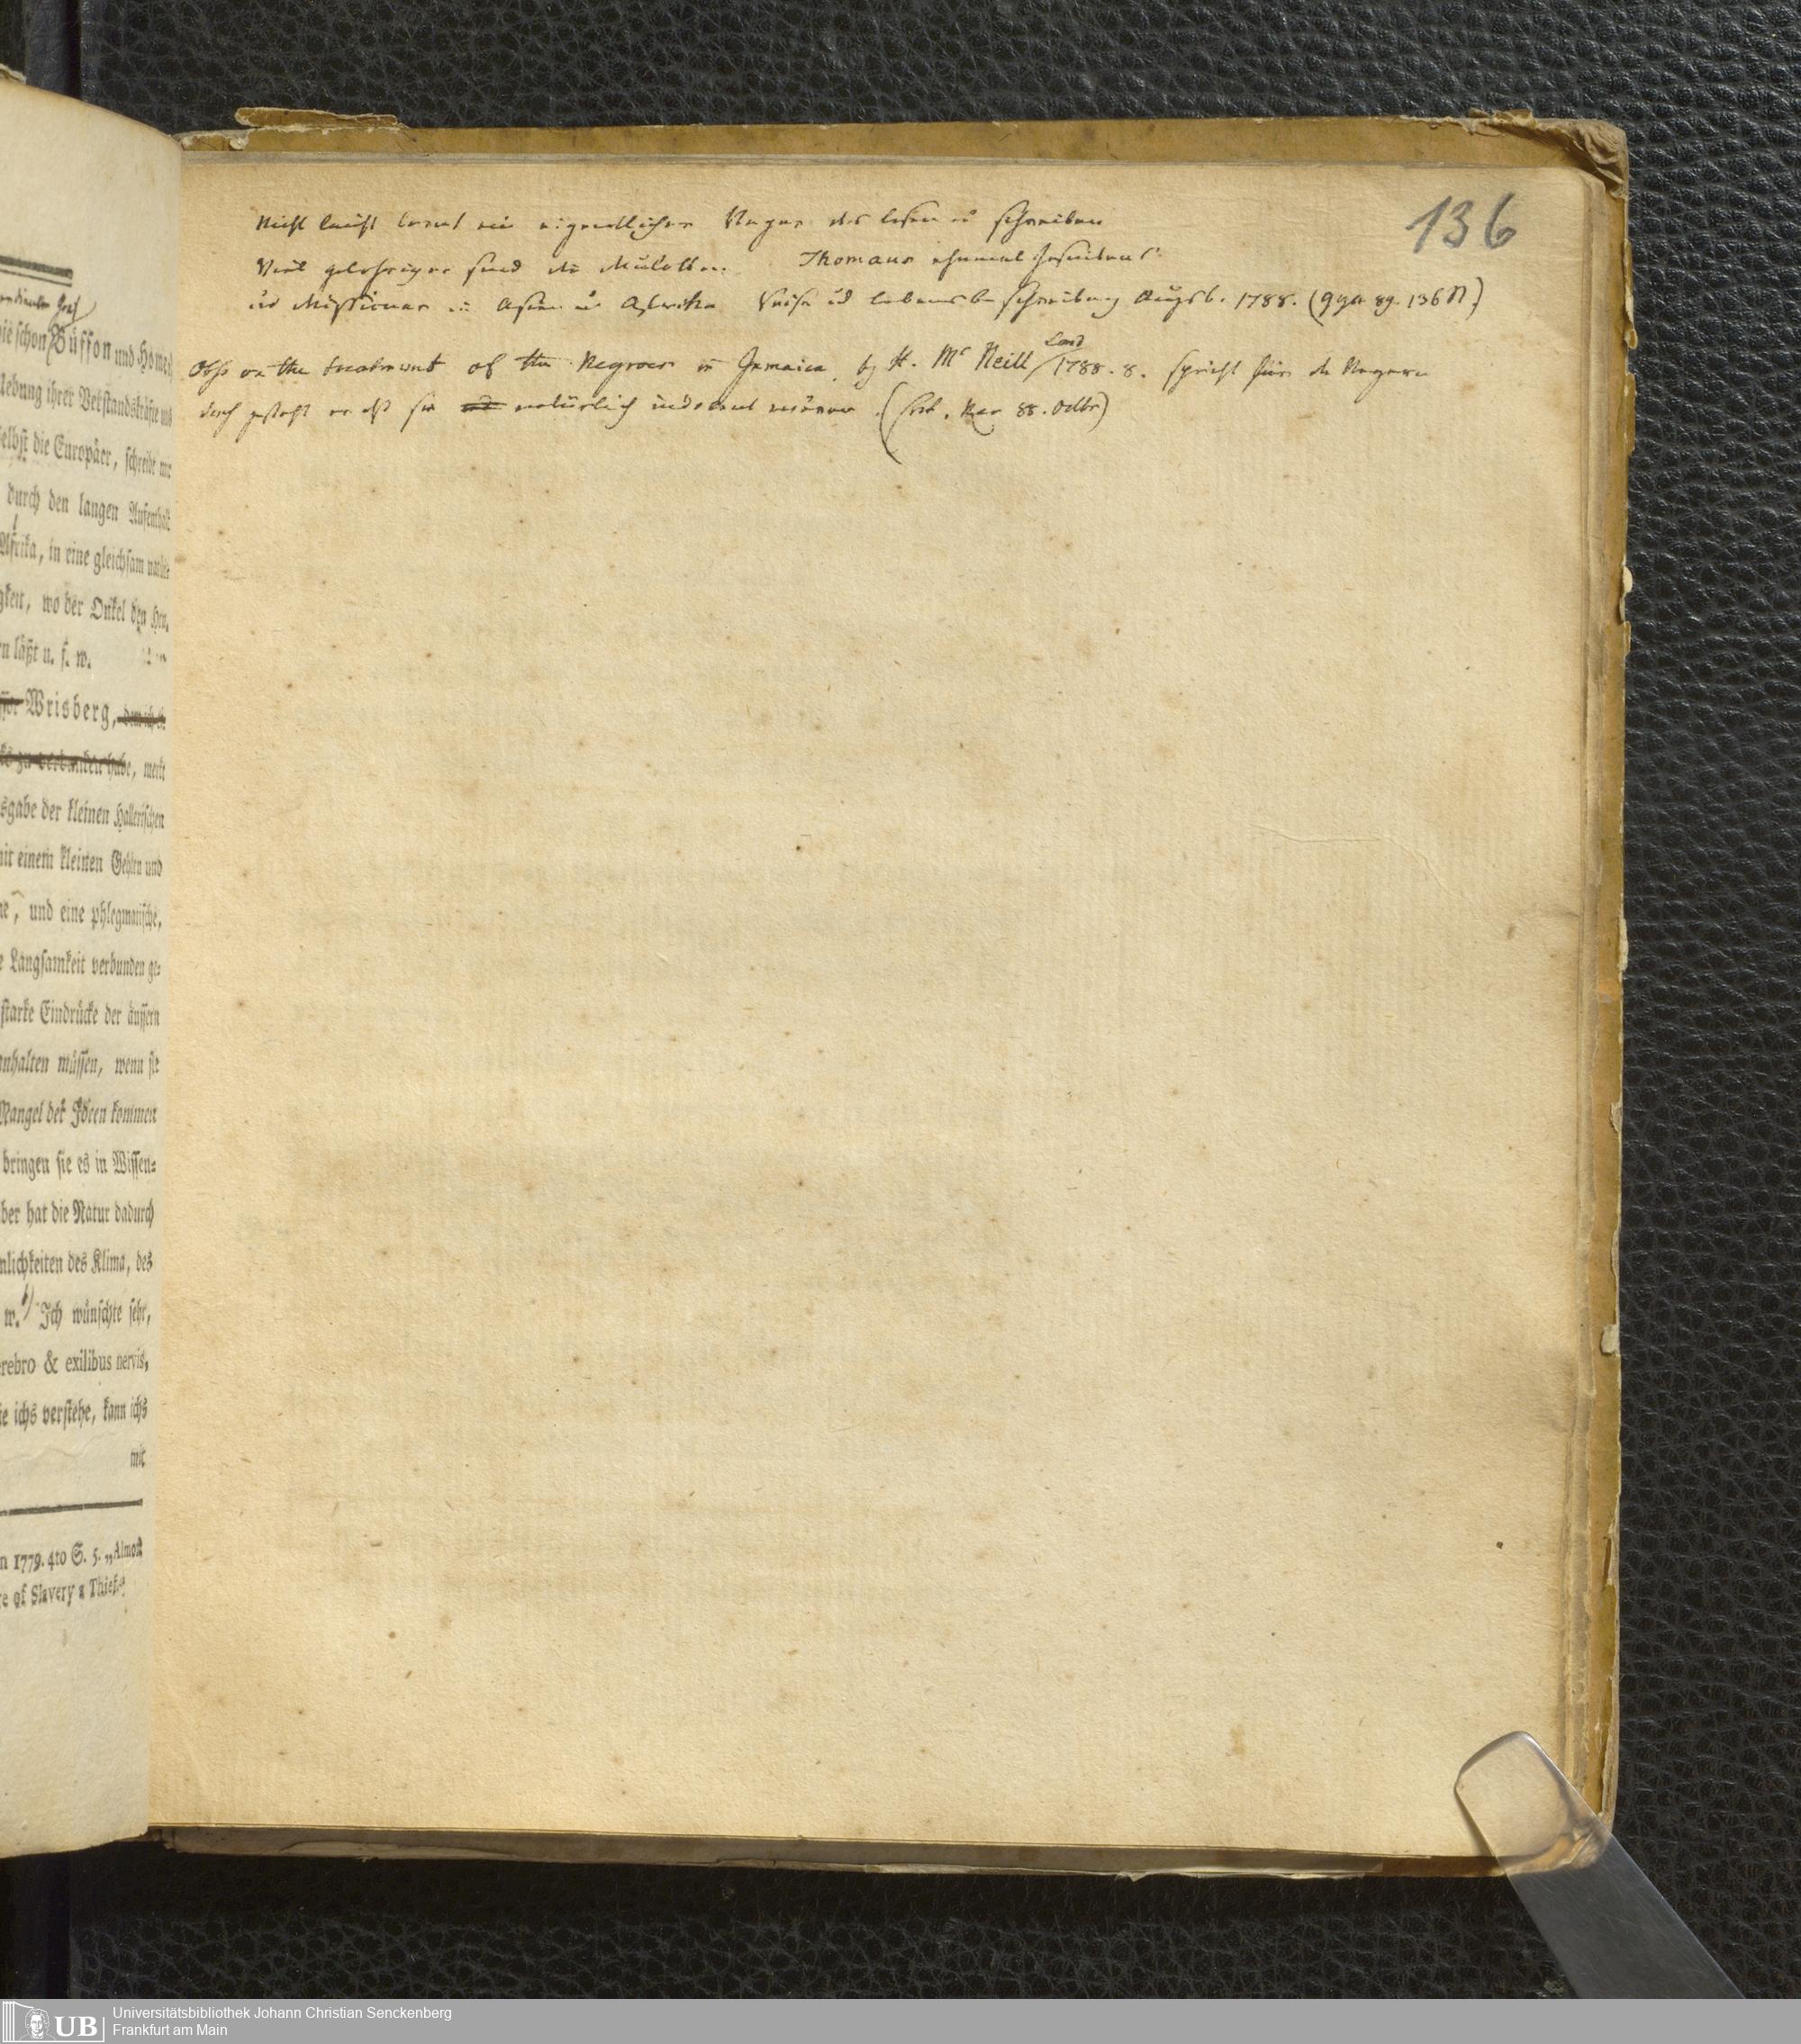 136
Nicht leicht lernt ein eigentlicher Neger das lesen u schreiben
Viel gelehriger sind die Mulatten. Thomans ehemal Jesuitens
und Missionar in Asien u Afrika Reise und lebensbeschreibung Augsb. 1788. (136
Obss on the treatment of the Negroes in Jamaica by H. Mc Neill Lond 1788. 8. spricht für die Negern
doch gesteht er daß sie natürlich indolent wären. (Crit. Rev 88. Octbr)
Graf
ie schon Büffon und Home
ebung ihrer Verstandskräfte und
elbst die Europäer, schreibt mir
durch den langen Aufenthalt
Afrika, in eine gleichsam
gkeit, wo der Onkel den Hrn.
n läßt u. s. w.
Wrisberg,
ks zu verdanken habe, merkt
sgabe der kleinen Hallerischen
mit einem kleinen Gehirn und
ne, und eine phlegmatische,
e Langsamkeit verbunden ge-
starke Eindrücke der äussern
anhalten müssen, wenn sie
Mangel der Ideen kommen
bringen sie es in Wissen-
ber hat die Natur dadurch
nlichkeiten des Klima, des
w. Ich wünschte sehr,
erebro & exilibus nervis,
ie ichs verstehe, kann ichs
mit
n 1779. 4to S. 5. „Almost
re of Slavery a Thief
UB
Universitätsbibliothek Johann Christian Senckenberg
Frankfurt am Main